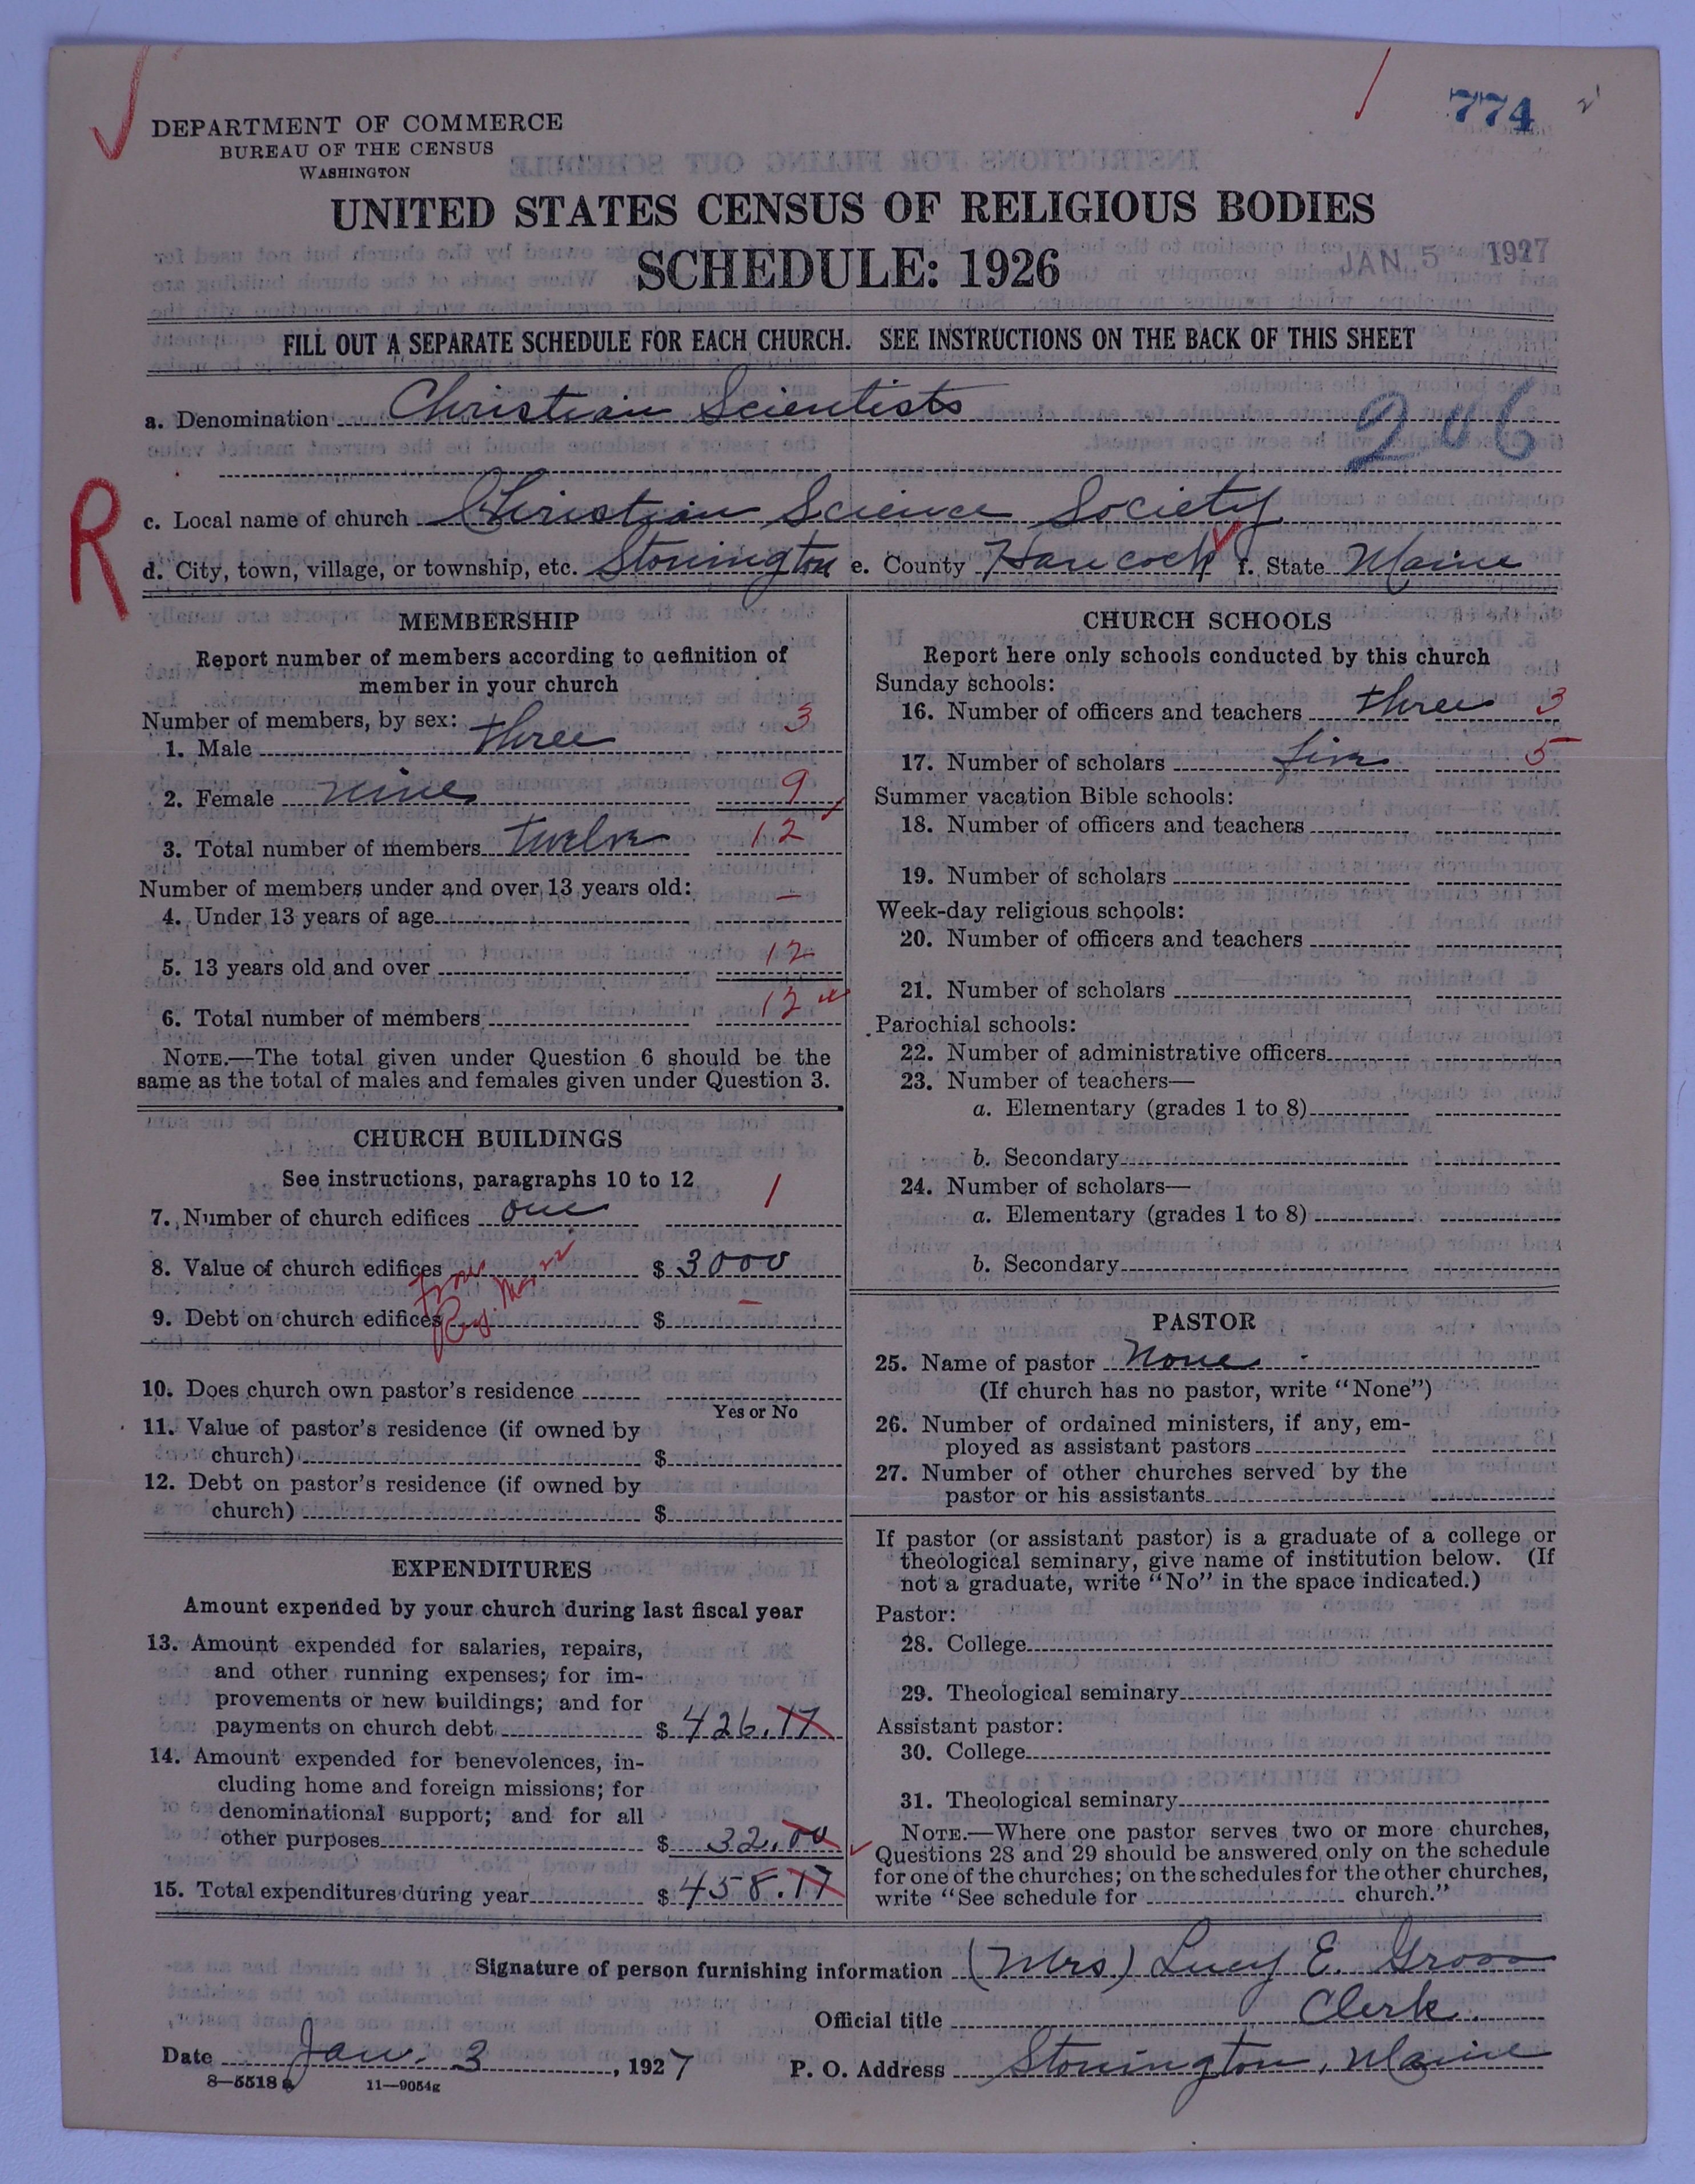 774
DEPARTMENT OF COMMERCE
BUREAU OF THE CENSUS
WASHINGTON
UNITED STATES CENSUS OF RELIGIOUS BODIES
SCHEDULE: 1926
JAN 5 1927
FILL OUT A SEPARATE SCHEDULE FOR EACH CHURCH. SEE INSTRUCTIONS ON THE BACK OF THIS SHEET
a. Denomination Christian Scientists
206
R
c. Local name of church Christian Science Society
d. City, town, village, or township, etc. Stonington e. County Hancock f. State Maine
MEMBERSHIP
Report number of members according to definition of
member in your church
Number of members, by sex:
1. Male three 3
2. Female nine 9
3. Total number of members Twelve 12
Number of members under and over 13 years old:
4. Under 13 years of age —
5. 13 years old and over 12
6. Total number of members 12
NOTE.—The total given under Question 6 should be the
same as the total of males and females given under Question 3.
CHURCH BUILDINGS
See instructions, paragraphs 10 to 12
7. Number of church edifices one 1
8. Value of church edifices $ 3000
9. Debt on church edifices $ —
10. Does church own pastor's residence
Yes or No
11. Value of pastor's residence (if owned by
church) $
12. Debt on pastor's residence (if owned by
church) $
EXPENDITURES
Amount expended by your church during last fiscal year
13. Amount expended for salaries, repairs,
and other running expenses; for im-
provements or new buildings; and for
payments on church debt $ 426.17
14. Amount expended for benevolences, in-
cluding home and foreign missions; for
denominational support; and for all
other purposes $ 32.00
15. Total expenditures during year $ 458.17
CHURCH SCHOOLS
Report here only schools conducted by this church
Sunday schools:
16. Number of officers and teachers three 3
17. Number of scholars five 5
Summer vacation Bible schools:
18. Number of officers and teachers
19. Number of scholars
Week-day religious schools:
20. Number of officers and teachers
21. Number of scholars
Parochial schools:
22. Number of administrative officers
23. Number of teachers—
a. Elementary (grades 1 to 8)
b. Secondary
24. Number of scholars—
a. Elementary (grades 1 to 8)
b. Secondary
PASTOR
25. Name of pastor None
(If church has no pastor, write "None")
26. Number of ordained ministers, if any, em-
ployed as assistant pastors
27. Number of other churches served by the
pastor or his assistants
If pastor (or assistant pastor) is a graduate of a college or
theological seminary, give name of institution below. (If
not a graduate, write "No" in the space indicated.)
Pastor:
28. College
29. Theological seminary
Assistant pastor:
30. College
31. Theological seminary
NOTE.—Where one pastor serves two or more churches,
Questions 28 and 29 should be answered only on the schedule
for one of the churches; on the schedules for the other churches,
write "See schedule for church."
Signature of person furnishing information (Mrs) Lucy E. Gross
Official title Clerk.
Date Jan. 3, 1927 P. O. Address Stonington, Maine
8—5518 a 11—9054g